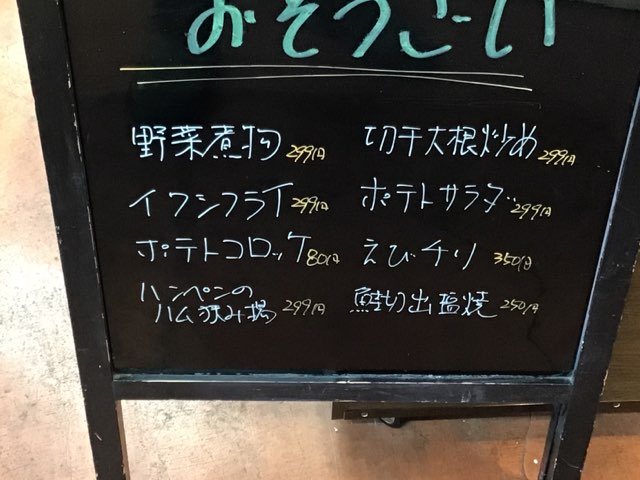 おそうざい
野菜煮物 299円
切干大根炒め 299円
イワシフライ 299円
ポテトサラダ 299円
ポテトコロッケ 80円
えびチリ 350円
ハンペンの
ハム挟み揚 299円
鮭切出塩焼 250円